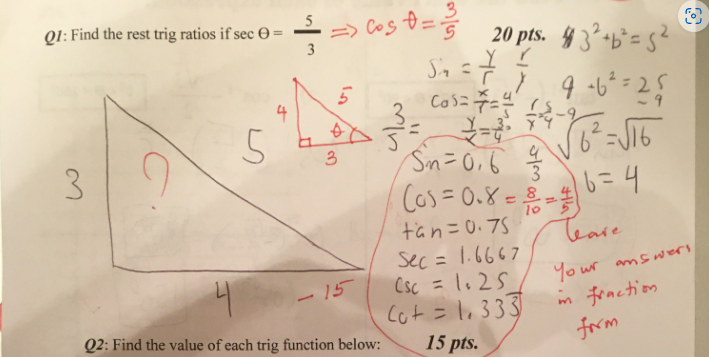 Q1: Find the rest trig ratios if sec Θ = 5/3 => cos θ = 3/5 20 pts. 3² + b² = 5²
Sin = y/r r/y
9 + b² = 25
-9 -9
Cos = x/r = 4/5 r/x = 5/4
y/x = 3/4
√b² = √16
b = 4
4
5
θ
3
3/5 =
3
5
?
4
- 15
Sin = 0.6 4/3
Cos = 0.8 = 8/10 = 4/5
tan = 0.75
Sec = 1.6667
Csc = 1.25
Cot = 1.333
leave
your answers
in fraction
form
Q2: Find the value of each trig function below: 15 pts.